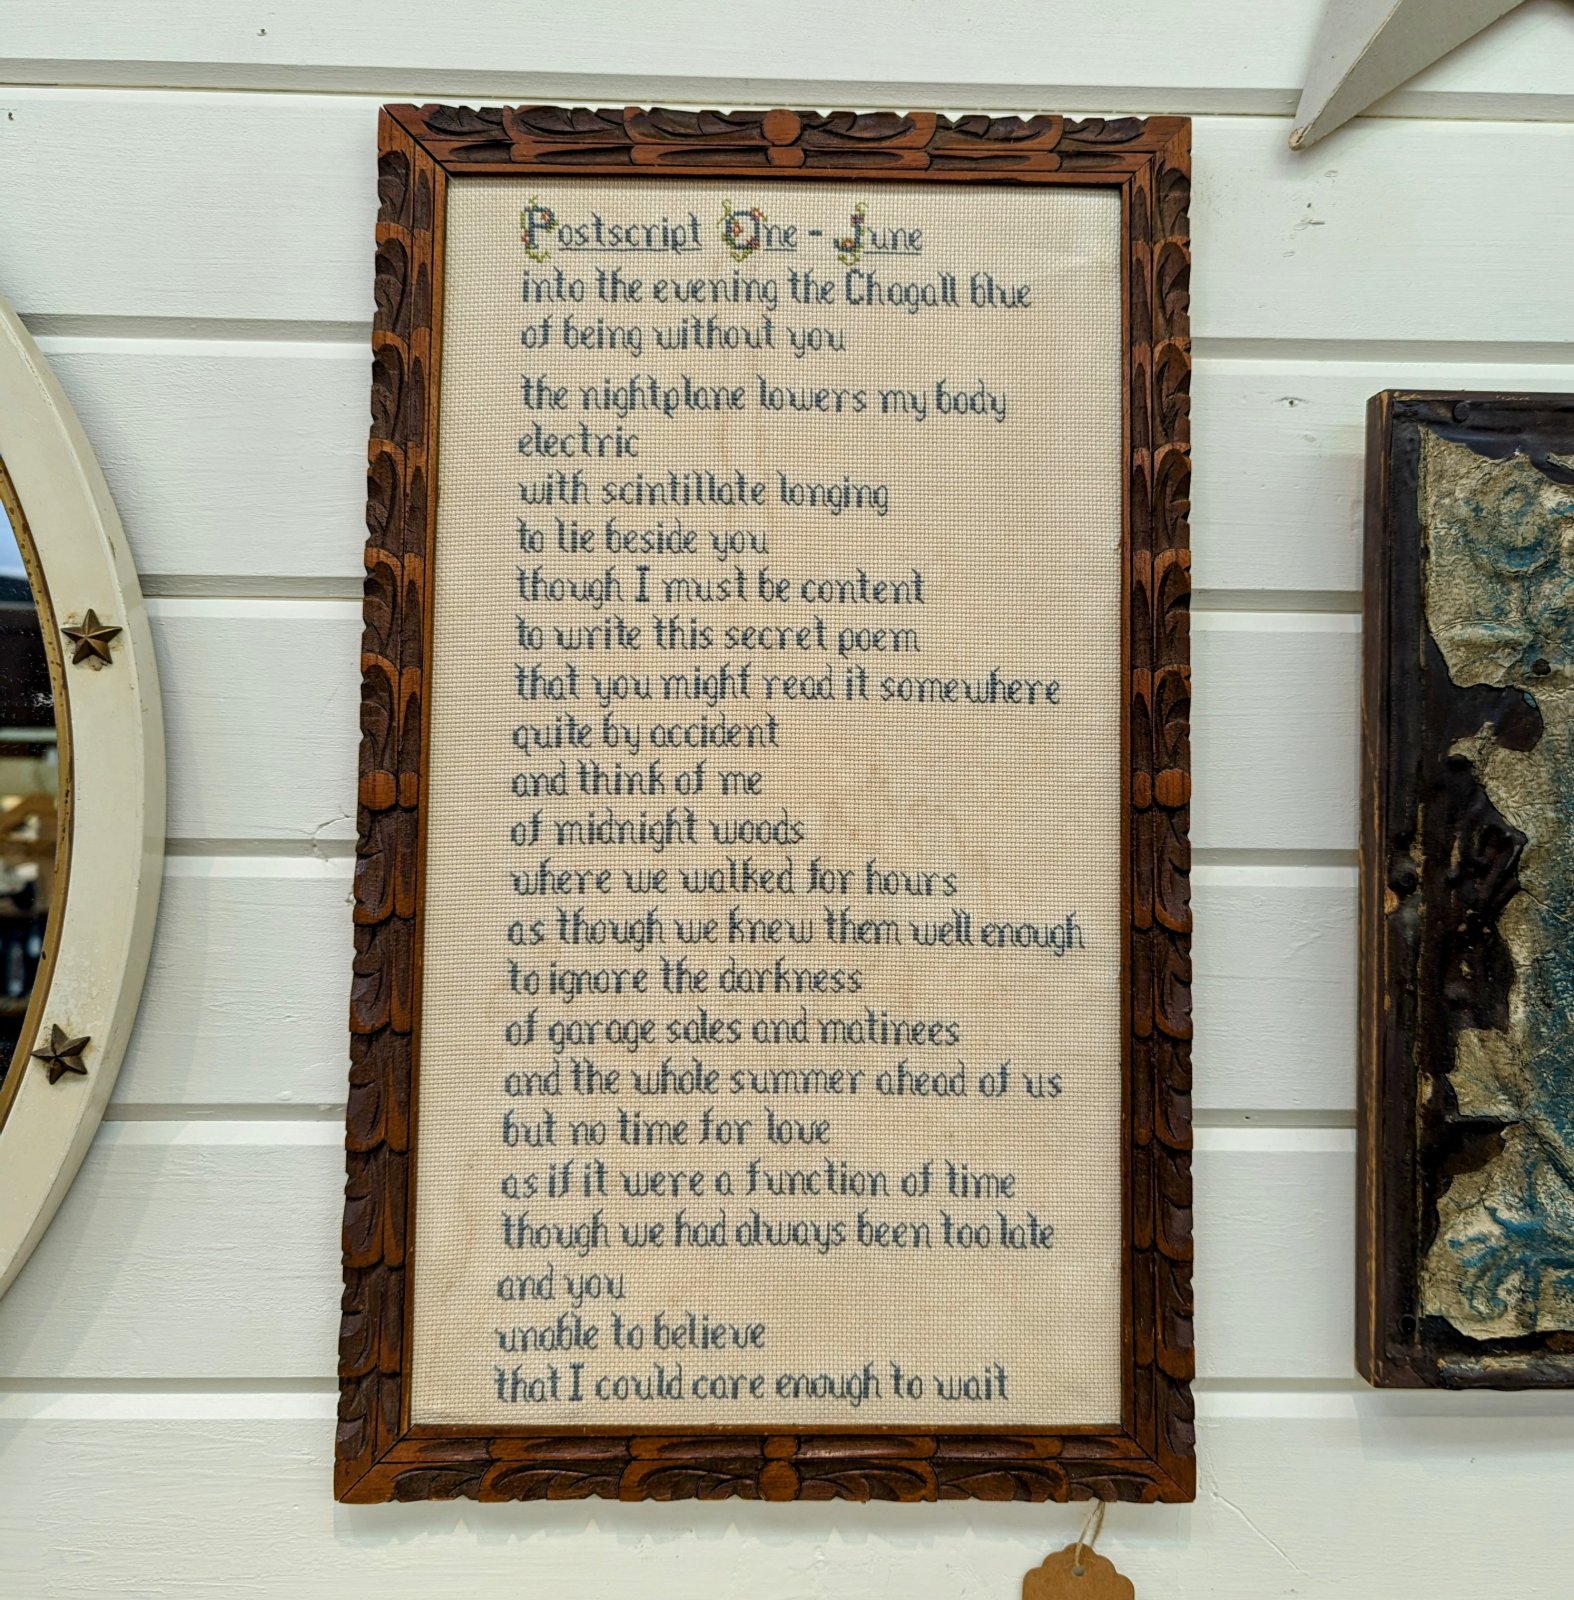 Postscript One - June
into the evening the Chagall blue
of being without you
the nightplane lowers my body
electric
with scintillate longing
to lie beside you
though I must be content
to write this secret poem
that you might read it somewhere
quite by accident
and think of me
of midnight woods
where we walked for hours
as though we knew them well enough
to ignore the darkness
of garage sales and matinees
and the whole summer ahead of us
but no time for love
as if it were a function of time
though we had always been too late
and you
unable to believe
that I could care enough to wait